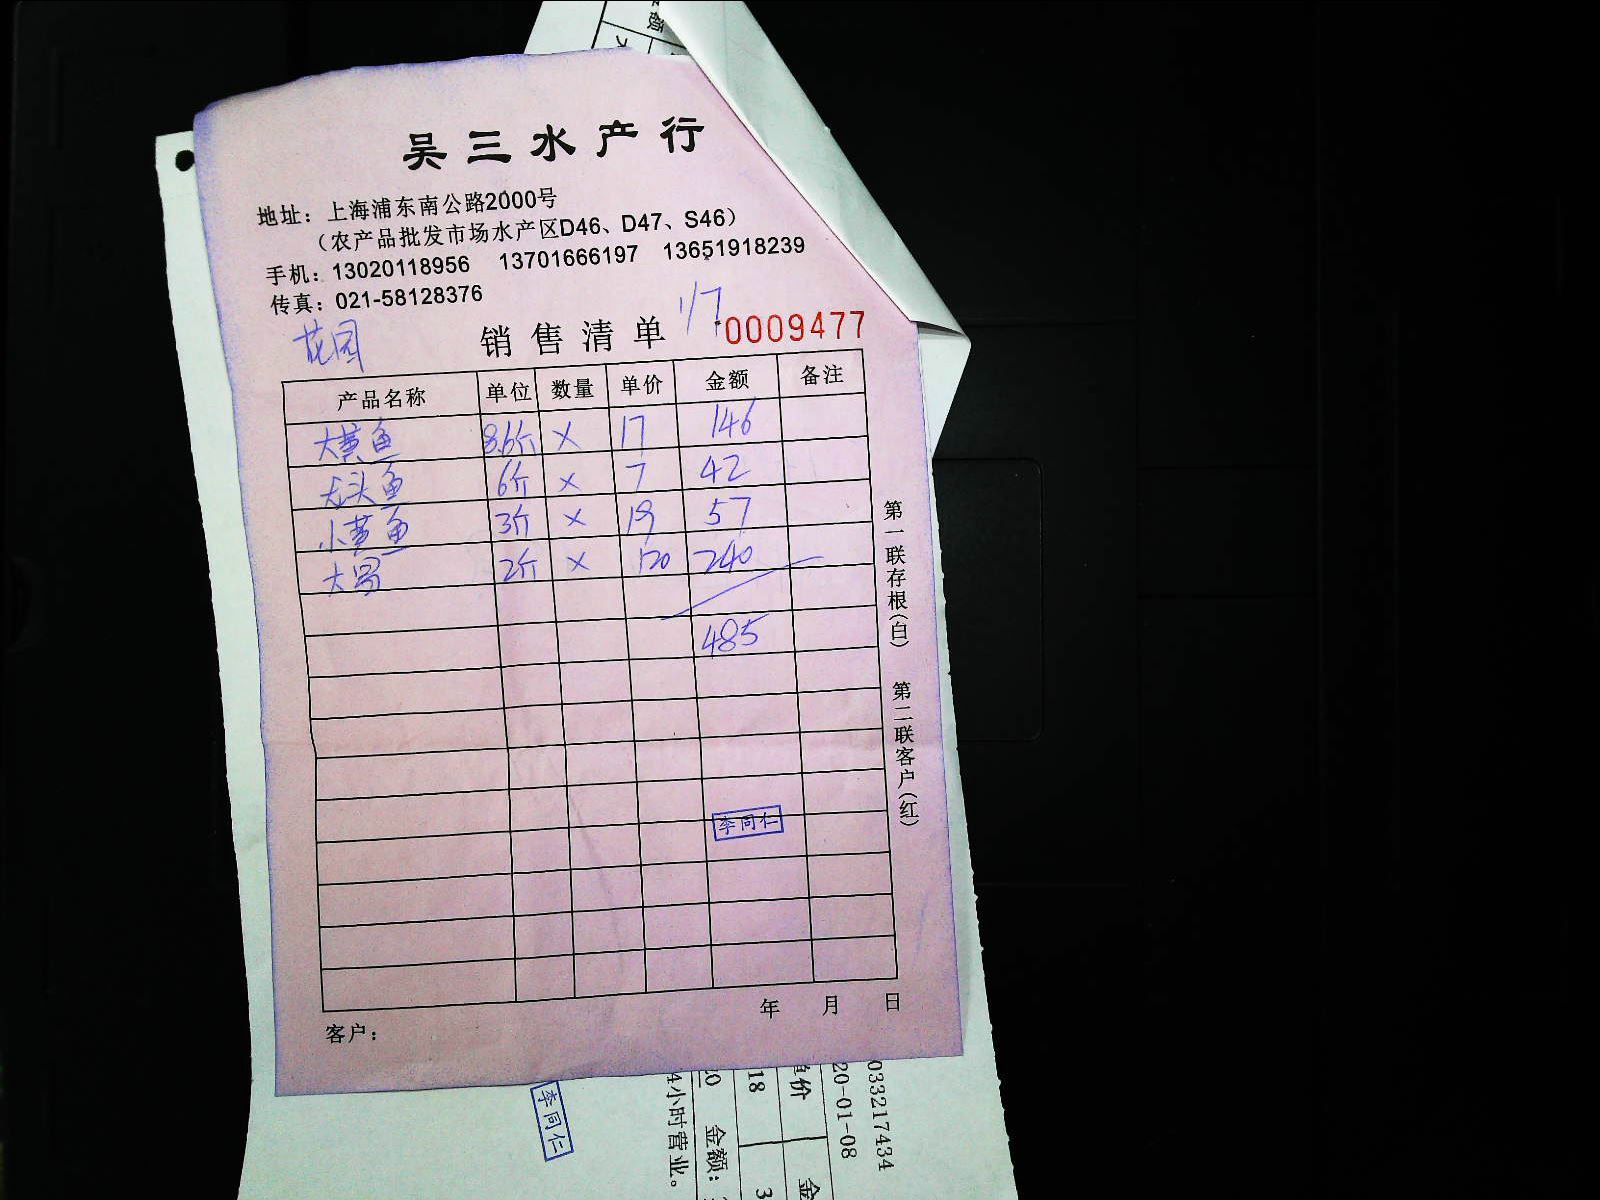 吴三水产行
地址：上海浦东南公路2000号
（农产品批发市场水产区D46、D47、S46）
手机：13020118956 13701666197 13651918239
传真：021-58128376
花园 销售清单 1/7 0009477
产品名称 单位 数量 单价 金额 备注
大黄鱼 8.6斤 × 17 146
龙头鱼 6斤 × 7 42
小黄鱼 3斤 × 19 57
大 2斤 × 120 240
485
李同仁
年 月 日
客户：
第一联存根（白） 第二联客户（红）
李同仁
4小时营业。
金额：
18
单价
20-01-08
033217434